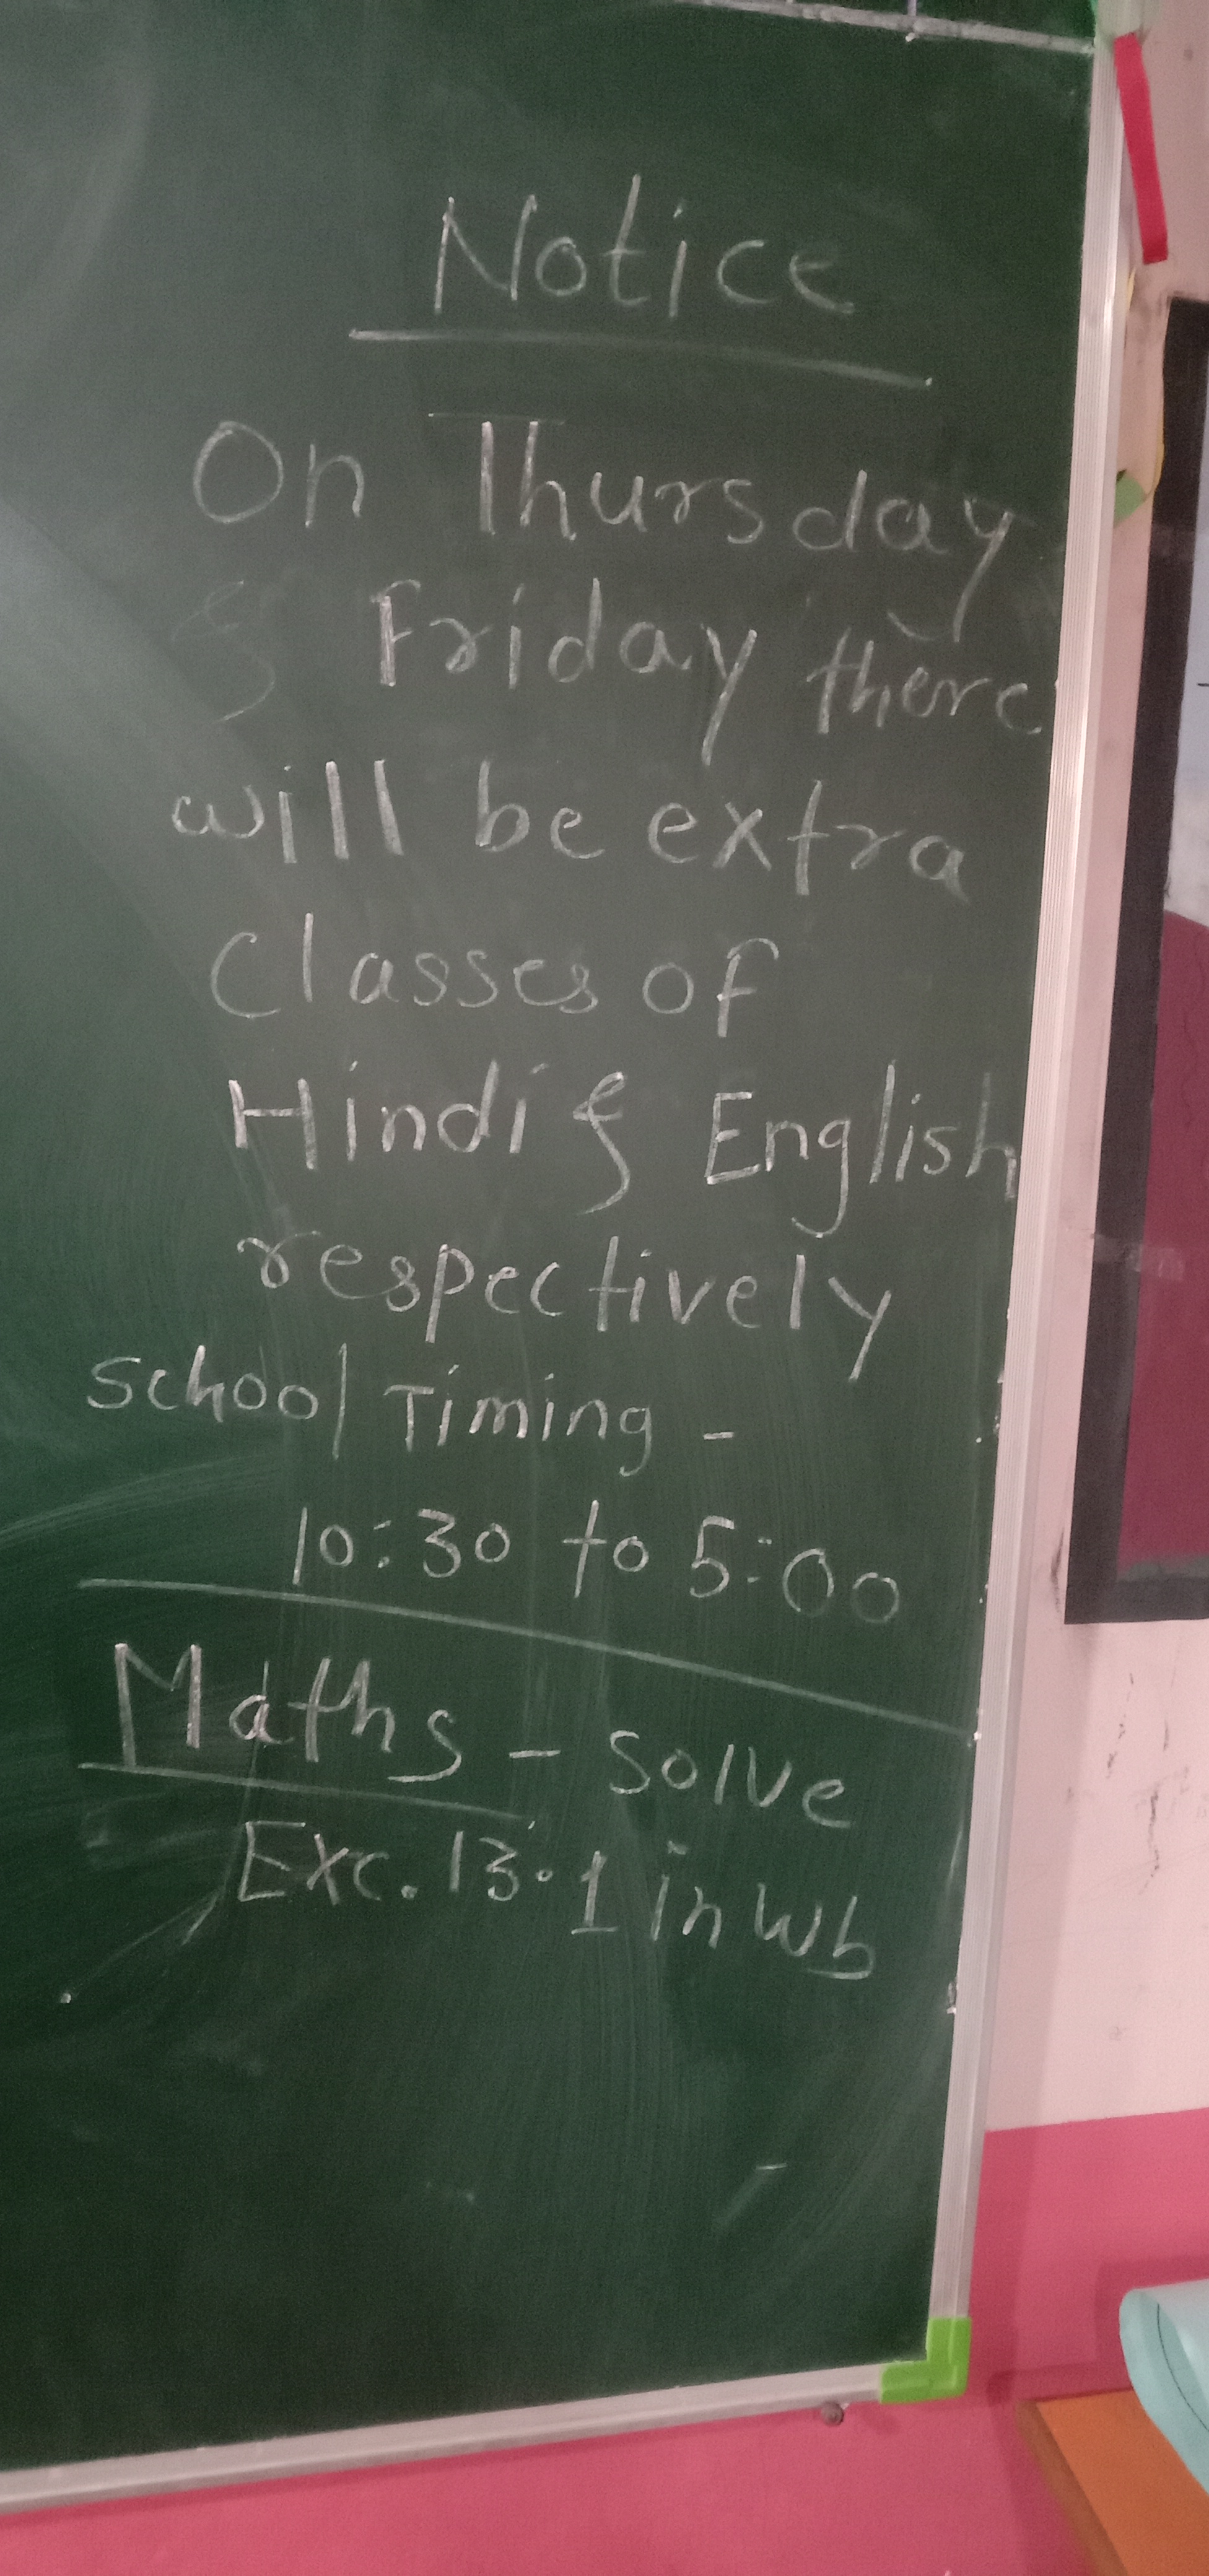 Notice
On Thursday
& Friday there
will be extra
Classes of
Hindi & English
respectively
School Timing -
10:30 to 5:00
Maths - Solve
Exc. 13.1 in Wb